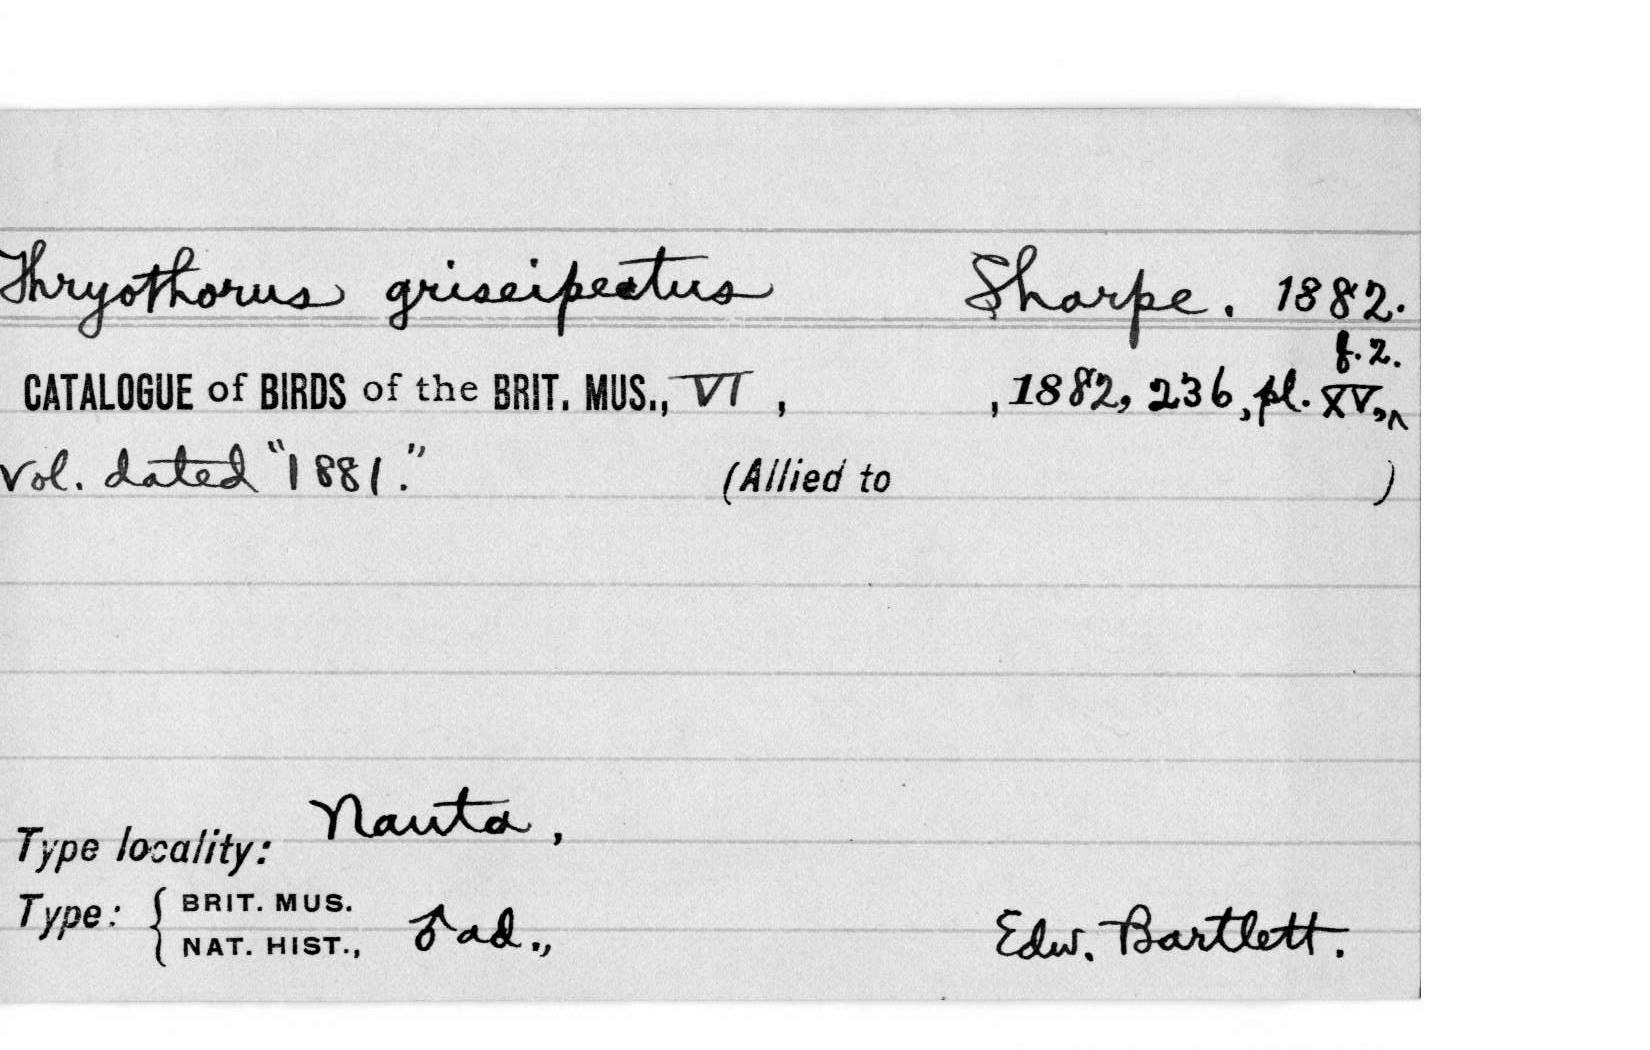 Thryothorus griseipectus Sharpe. 1882.
f. 2.
CATALOGUE of BIRDS of the BRIT. MUS., VI , , 1882, 236, pl. XV,^
Vol. dated "1881." (Allied to )
Type locality: Nauta,
Type: { BRIT. MUS.
NAT. HIST., ♂ ad., Edw. Bartlett.